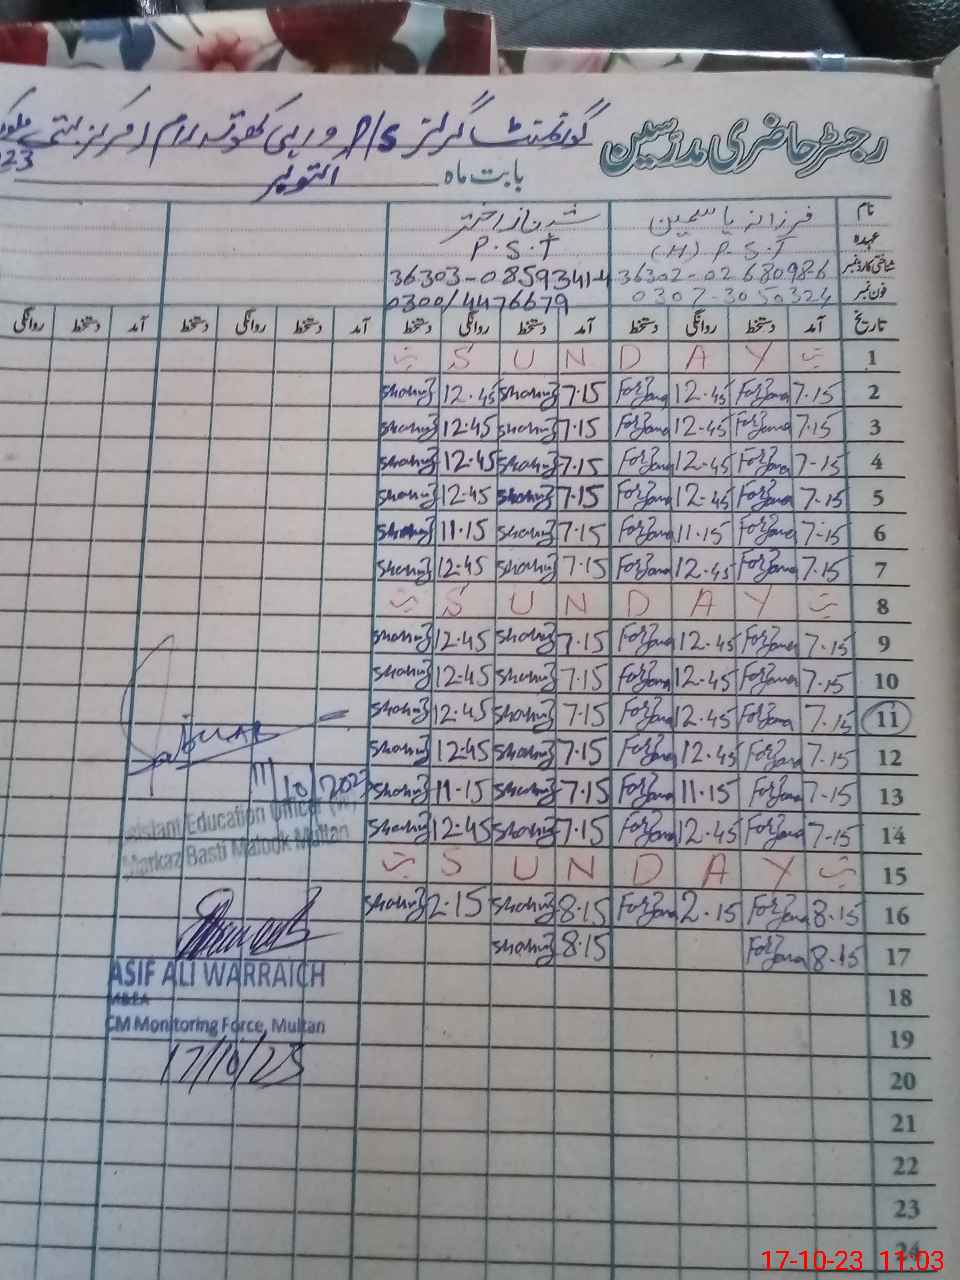 رجسٹر حاضری مدرسین گورنمنٹ گرلز P/S
بابت ماہ اکتوبر
نام فرزانہ یاسمین شہناز اختر
عہدہ (H) P.S.T P.S.T
شناختی کارڈ نمبر 36302-0268098-6 36303-0859341-4
فون نمبر 0307-3050324 0300/4476679
تاریخ آمد دستخط روانگی دستخط آمد دستخط روانگی دستخط آمد دستخط روانگی دستخط آمد دستخط روانگی
1 SUNDAY
2 7.15 Farzana 12.45 Farzana 7.15 Shahnaz 12.45 Shahnaz
3 7.15 Farzana 12-45 Farzana 7.15 Shahnaz 12.45 Shahnaz
4 7-15 Farzana 12-45 Farzana 7.15 Shahnaz 12.45 Shahnaz
5 7.15 Farzana 12-45 Farzana 7.15 Shahnaz 12-45 Shahnaz
6 7-15 Farzana 11-15 Farzana 7.15 Shahnaz 11.15 Shahnaz
7 7.15 Farzana 12.45 Farzana 7.15 Shahnaz 12.45 Shahnaz
8 SUNDAY
9 7.15 Farzana 12.45 Farzana 7.15 Shahnaz 12.45 Shahnaz
10 7.15 Farzana 12.45 Farzana 7.15 Shahnaz 12.45 Shahnaz
11 7.15 Farzana 12.45 Farzana 7.15 Shahnaz 12.45 Shahnaz
12 7.15 Farzana 12.45 Farzana 7.15 Shahnaz 12.45 Shahnaz
13 7.15 Farzana 11.15 Farzana 7.15 Shahnaz 11.15 Shahnaz
14 7.15 Farzana 12.45 Farzana 7.15 Shahnaz 12.45 Shahnaz
15 SUNDAY
16 8.15 Farzana 2.15 Farzana 8.15 Shahnaz 2.15 Shahnaz
17 8.15 Farzana 8.15 Shahnaz
18
19
20
21
22
23
24
11/10/2023
Assistant Education Officer
Markaz Basti Malook Multan
ASIF ALI WARRAICH
MEA
CM Monitoring Force, Multan
17/10/23
17-10-23 11:03